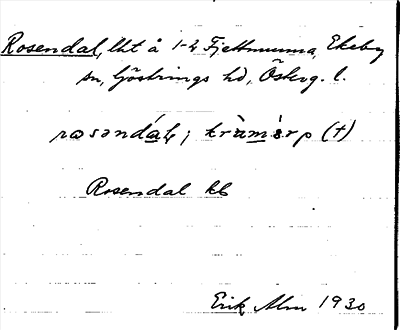 Rosendal, lht å 1-2 Fjettmunna, Ekeby
sn, Göstrings hd, Österg. l.
rosəndál; kràmərp (†)
Rosendal kb
Erik Alm 1930